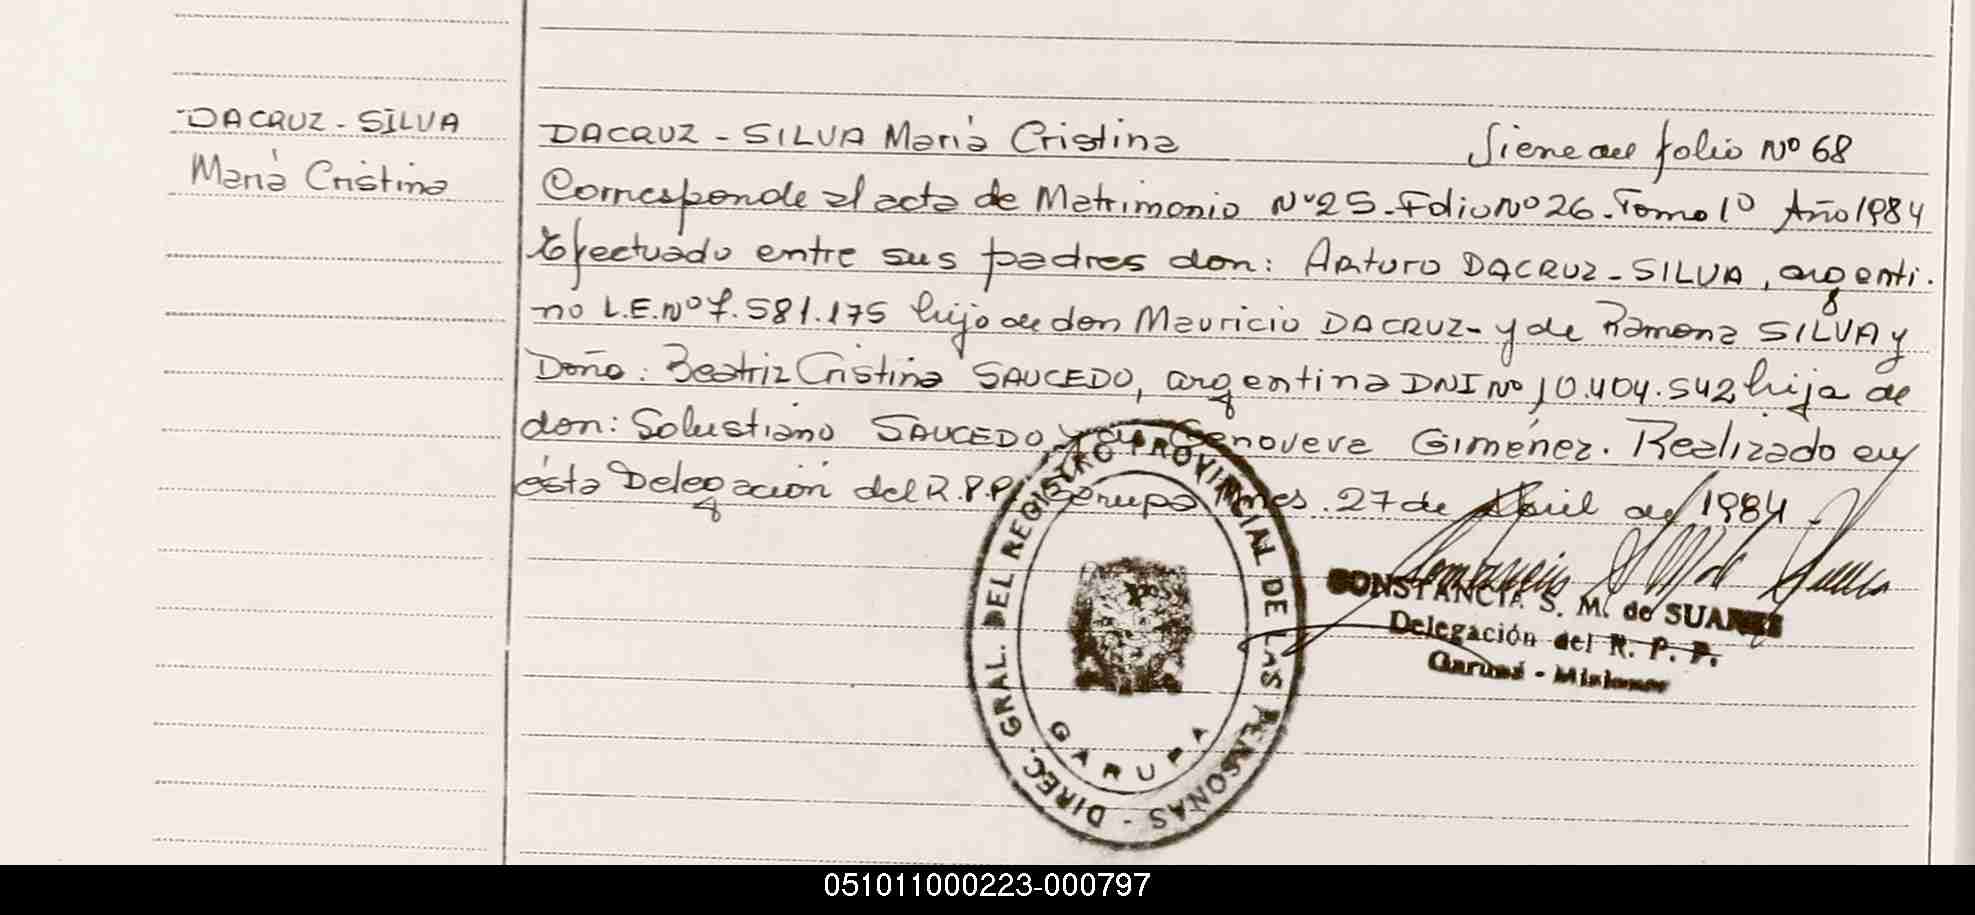 DACRUZ - SILVA
María Cristina
DACRUZ - SILVA María Cristina Viene del folio Nº 68
Corresponde al acta de Matrimonio Nº 25 - Folio Nº 26 - Tomo 1º Año 1984
Efectuado entre sus padres don: Arturo DACRUZ - SILVA, argenti-
no L.E. Nº 7.581.175 hijo de don Mauricio DACRUZ - y de Ramona SILVA y
Doña: Beatriz Cristina SAUCEDO, argentina DNI Nº 10.404.542 hija de
don: Solustiano SAUCEDO y de Genoveva Giménez. Realizado en
ésta Delegación del R.P.P. Garupa Mnes. 27 de Abril de 1984 -
DIREC. GRAL. DEL REGISTRO PROVINCIAL DE LAS PERSONAS -
GARUPA
CONSTANCIA S. M. de SUAREZ
Delegación del R. P. P.
Garupá - Misiones
051011000223-000797